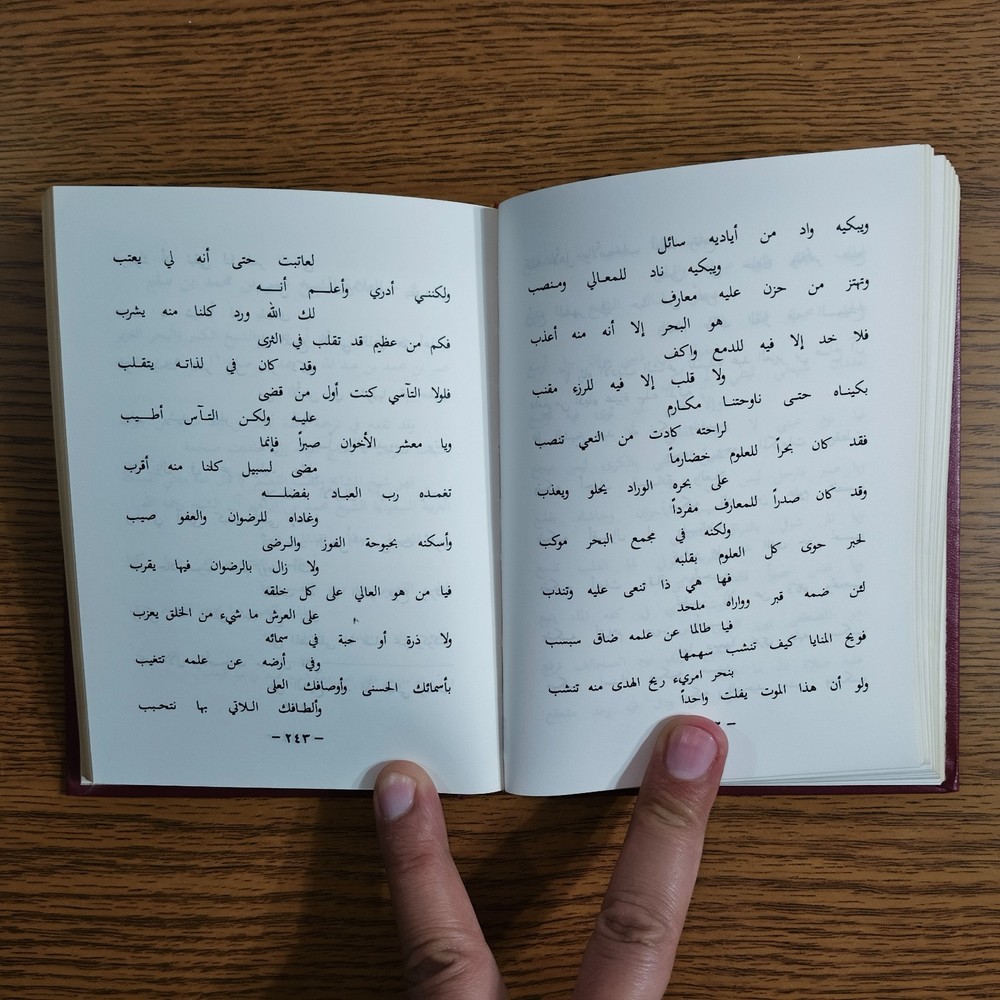 ويبكيه واد من أياديه سائل
ويبكيه ناد للمعالي ومنصب
وتهتز من حزن عليه معارف
هو البحر إلا أنه منه أعذب
فلا خد إلا فيه للدمع واكف
ولا قلب إلا فيه للرزء مقنب
بكيناه حتى ناوحتنا مكارم
لراحته كادت من النعي تنصب
فقد كان بحراً للعلوم خضارماً
على بحره الوراد يحلو ويعذب
وقد كان صدراً للمعارف مفرداً
ولكنه في مجمع البحر موكب
لحبر حوى كل العلوم بقلبه
فها هي ذا تنعى عليه وتندب
لئن ضمه قبر وواراه ملحد
فيا طالما عن علمه ضاق سبسب
فويح المنايا كيف تنشب سهمها
بنحر امريء ريح الهدى منه تنشب
ولو أن هذا الموت يفلت واحداً
لعاتبت حتى أنه لي يعتب
ولكنني أدري وأعلم أنه
لك الله ورد كلنا منه يشرب
فكم من عظيم قد تقلب في الثرى
وقد كان في لذاته يتقلب
فلولا التآسي كنت أول من قضى
عليه ولكن التآس أطيب
ويا معشر الأخوان صبراً فإنما
مضى لسبيل كلنا منه أقرب
تغمده رب العباد بفضله
وغاداه للرضوان والعفو صيب
وأسكنه بحبوحة الفوز والرضى
ولا زال بالرضوان فيها يقرب
فيا من هو العالي على كل خلقه
على العرش ما شيء من الخلق يعزب
ولا ذرة أو حبة في سمائه
وفي أرضه عن علمه تتغيب
بأسمائك الحسنى وأوصافك العلى
وألطافك اللاتي بها نتحبب
– ٢٤٣ –